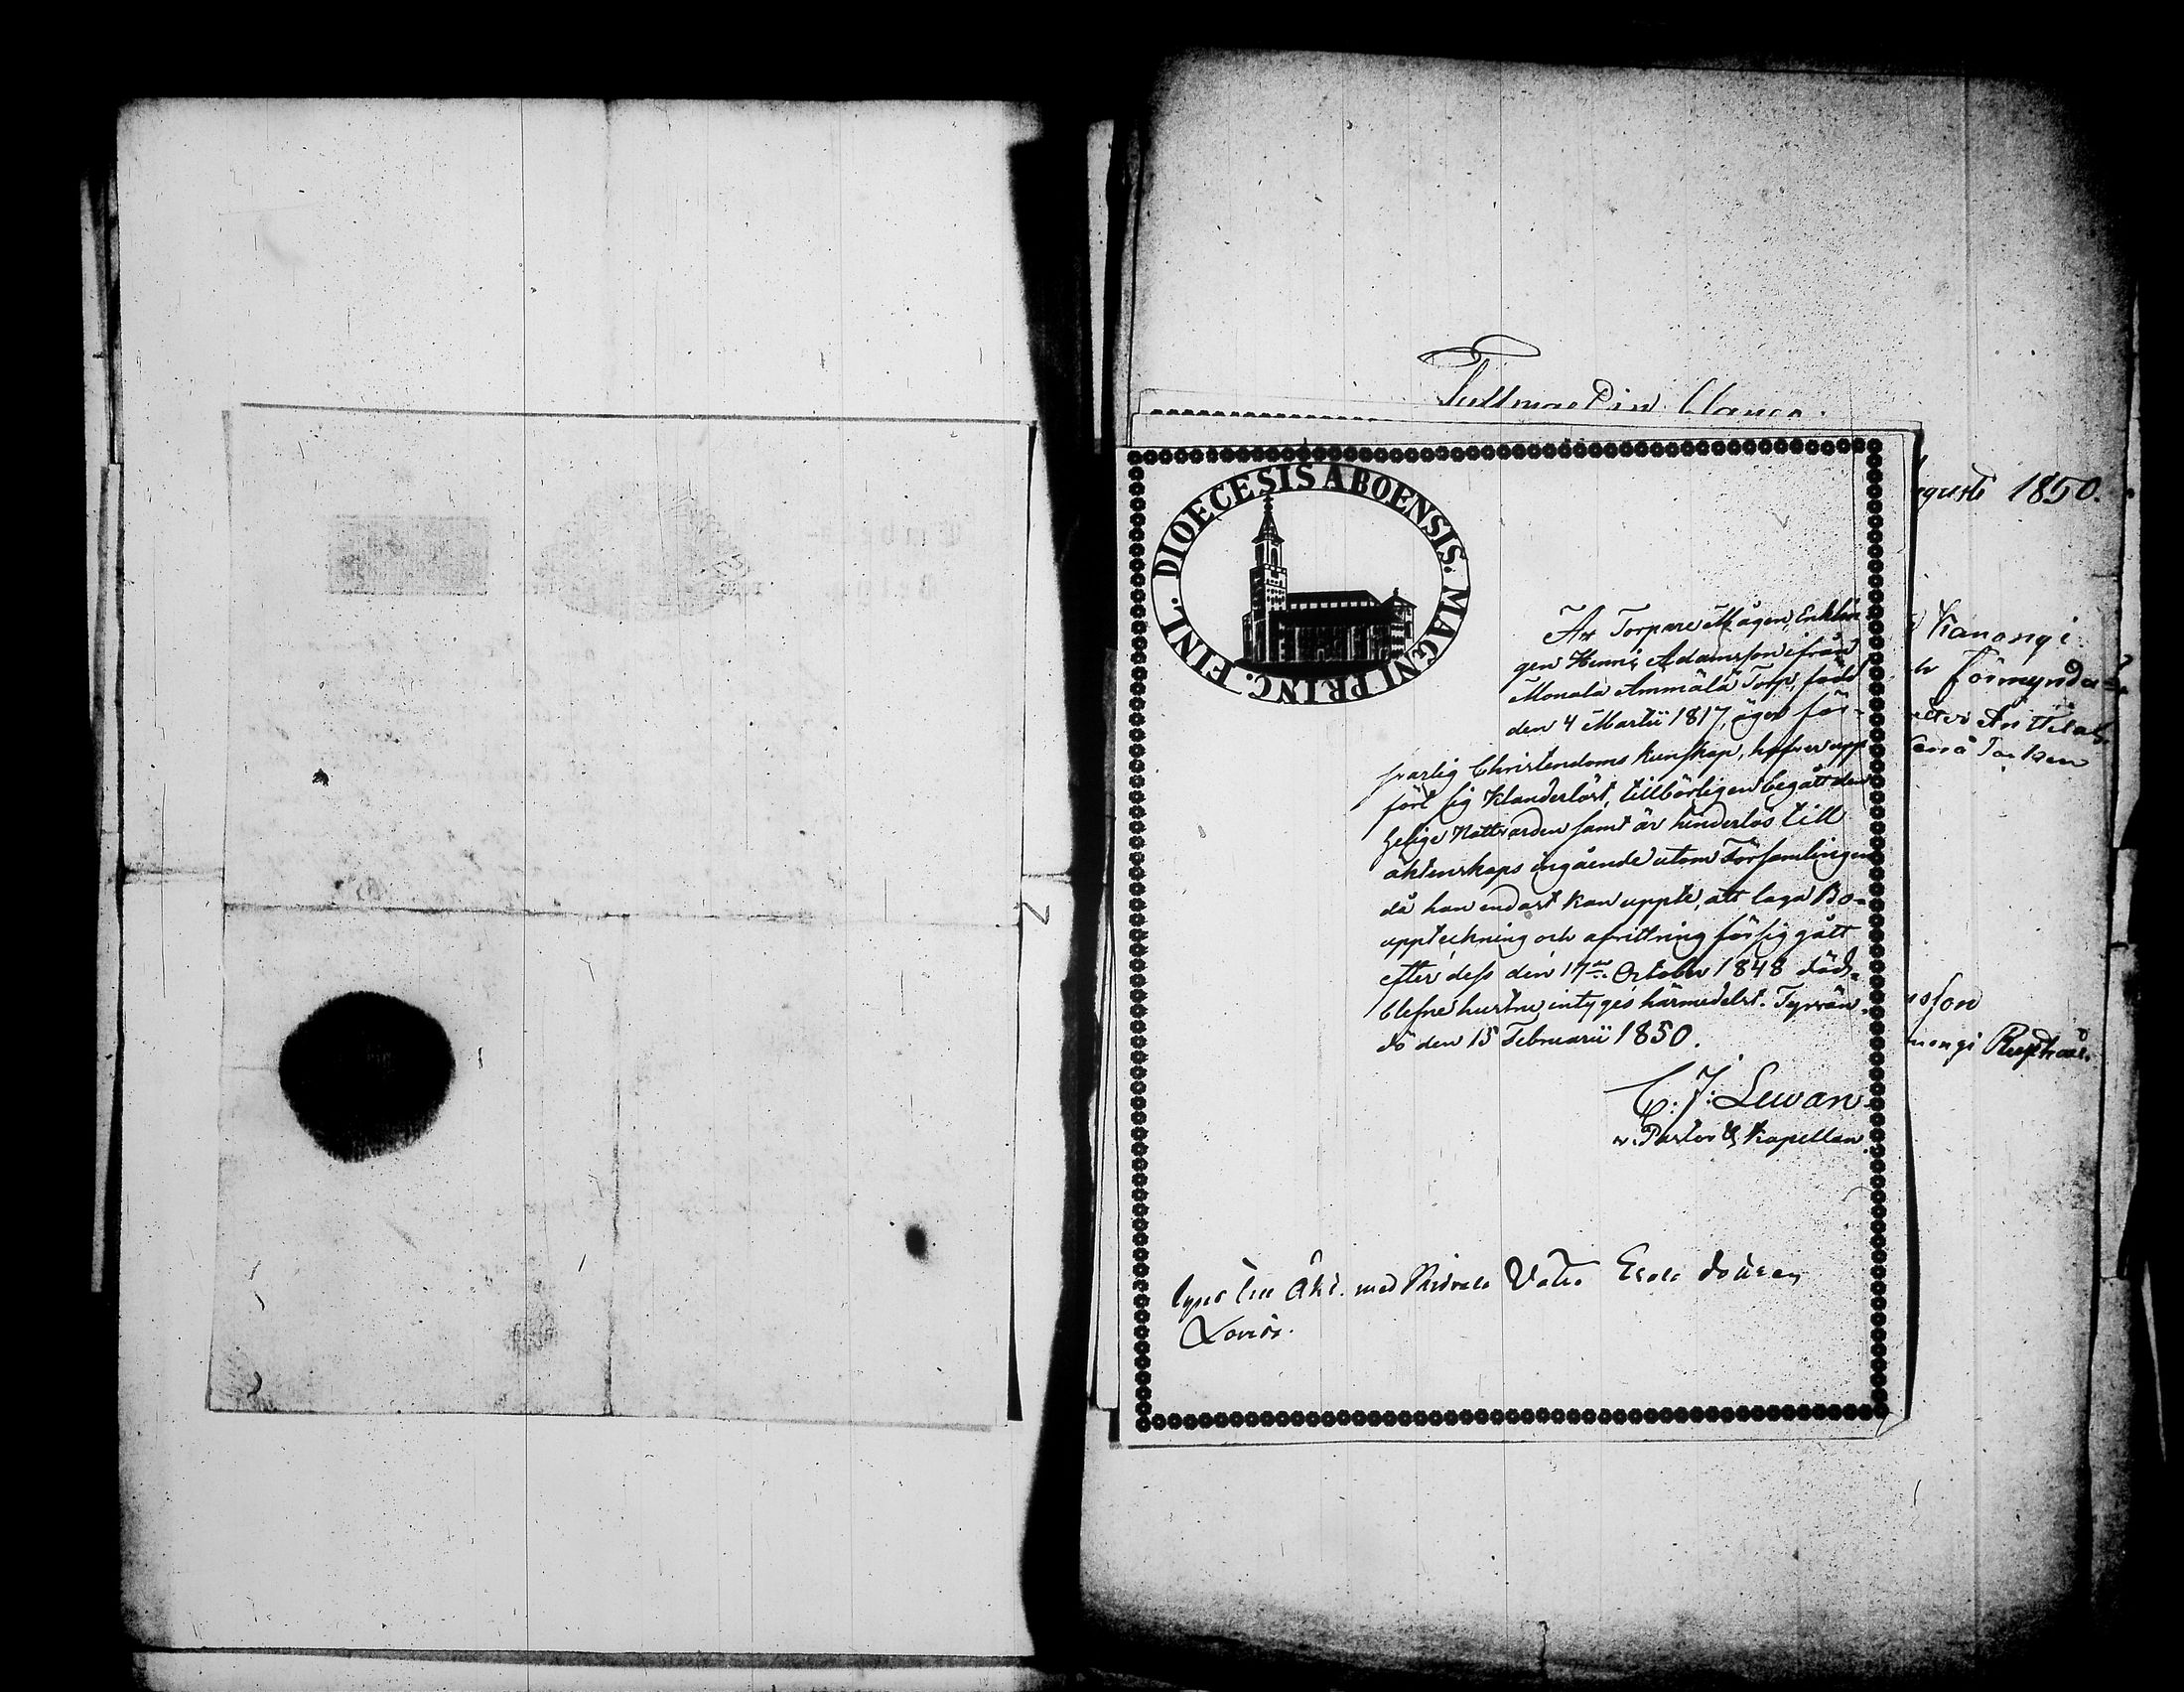 Fullmagt in blanco.
gusti 1850.
DIOECESIS ABOENSIS. MAGNI PRINC. FINL.
At Torpare Mågen, Enklin-
gen Henric Adamsson ifrån
Monala Ammälä Torp, född
den 4 Martii 1817, äger för-
svarlig Christendoms kunskap, hafver upp
fört sig klanderlöst, tillbörligen begått den
helige Nattvarden samt är hinderlös till
äktenskaps ingående utom Församlingen
då han endast kan uppte, att laga Bo-
uppteckning och afvittring för sig gått
efter dess den 17de October 1848 död-
blefne hustru, intygas härmedelst. Tyrvän-
dö den 15 Februarii 1850.
C. J. Lewan
v. Pastor & Kapellan
till Äkt. med
Lovisa.
Kanongi
Förmynda
sson